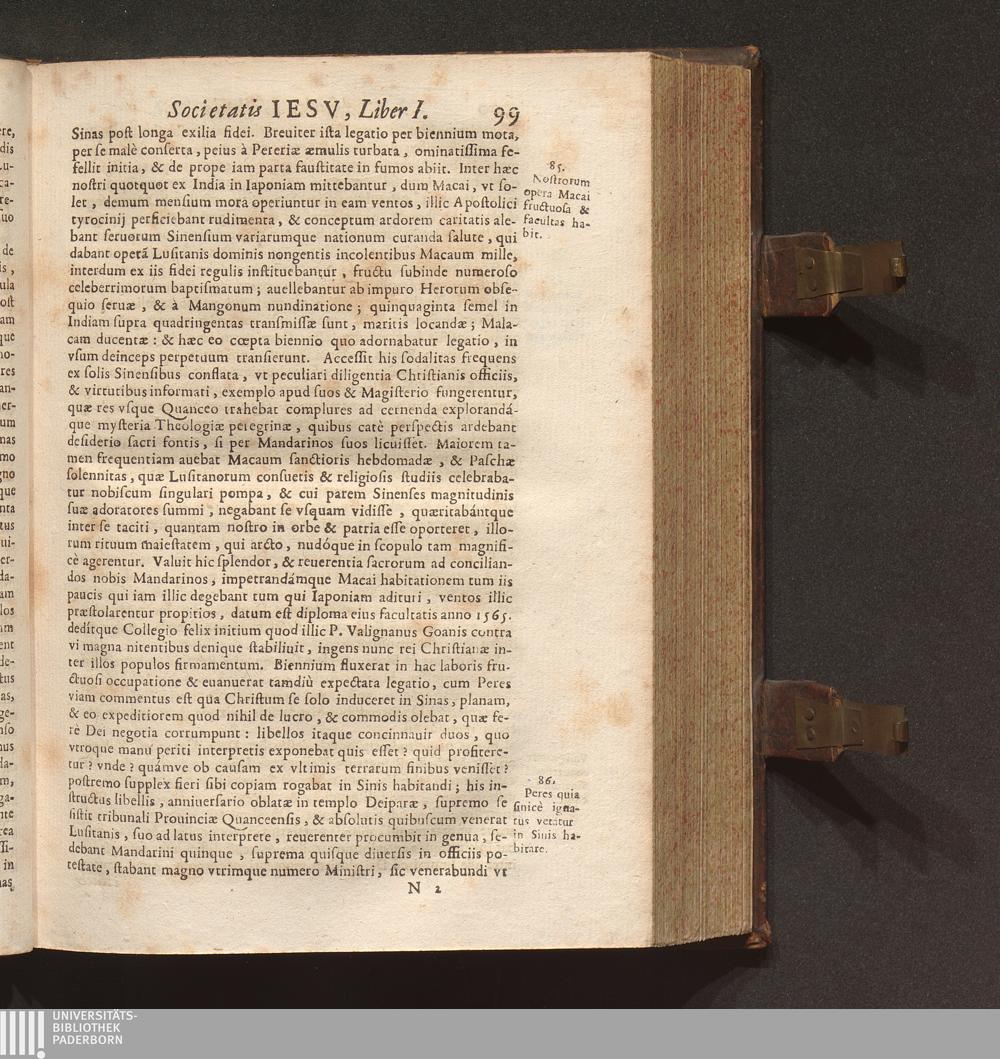 Societatis IESV, Liber I. 99
Sinas post longa exilia fidei. Breuiter ista legatio per biennium mota,
per se malè conserta, peius à Pereriæ æmulis turbata, ominatissima fe-
fellit initia, & de prope iam parta faustitate in fumos abiit. Inter hæc
nostri quotquot ex India in Iaponiam mittebantur, dum Macai, vt so-
let, demum mensium mora operiuntur in eam ventos, illic Apostolici
tyrocinij perficiebant rudimenta, & conceptum ardorem caritatis ale-
bant seruorum Sinensium variarumque nationum curanda salute, qui
dabant operā Lusitanis dominis nongentis incolentibus Macaum mille,
interdum ex iis fidei regulis instituebantur, fructu subinde numeroso
celeberrimorum baptismatum; auellebantur ab impuro Herorum obse-
quio seruæ, & à Mangonum nundinatione; quinquaginta semel in
Indiam supra quadringentas transmissæ sunt, maritis locandæ; Mala-
cam ducentæ: & hæc eo cœpta biennio quo adornabatur legatio, in
vsum deinceps perpetuum transierunt. Accessit his sodalitas frequens
ex solis Sinensibus conflata, vt peculiari diligentia Christianis officiis,
& virtutibus informati, exemplo apud suos & Magisterio fungerentur,
quæ res vsque Quanceo trahebat complures ad cernenda explorandá-
que mysteria Theologiæ peregrinæ, quibus catè perspectis ardebant
desiderio sacri fontis, si per Mandarinos suos licuisset. Maiorem ta-
men frequentiam auebat Macaum sanctioris hebdomadæ, & Paschæ
solennitas, quæ Lusitanorum consuetis & religiosis studiis celebraba-
tur nobiscum singulari pompa, & cui parem Sinenses magnitudinis
suæ adoratores summi, negabant se vsquam vidisse, quæritabántque
inter se taciti, quantam nostro in orbe & patria esse oporteret, illo-
rum rituum maiestatem, qui arcto, nudóque in scopulo tam magnifi-
cè agerentur. Valuit hic splendor, & reuerentia sacrorum ad concilian-
dos nobis Mandarinos, impetrandámque Macai habitationem tum iis
paucis qui iam illic degebant tum qui Iaponiam adituri, ventos illic
præstolarentur propitios, datum est diploma eius facultatis anno 1565.
deditque Collegio felix initium quod illic P. Valignanus Goanis contra
vi magna nitentibus denique stabiliuit, ingens nunc rei Christianæ in-
ter illos populos firmamentum. Biennium fluxerat in hac laboris fru-
ctuosi occupatione & euanuerat tamdiù expectata legatio, cum Peres
viam commentus est qua Christum se solo induceret in Sinas, planam,
& eo expeditiorem quod nihil de lucro, & commodis olebat, quæ fe-
rè Dei negotia corrumpunt: libellos itaque concinnauit duos, quo
vtroque manu periti interpretis exponebat quis esset? quid profitere-
tur? vnde? quámve ob causam ex vltimis terrarum finibus venisset?
postremo supplex fieri sibi copiam rogabat in Sinis habitandi; his in-
structus libellis, anniuersario oblatæ in templo Deiparæ, supremo se
sistit tribunali Prouinciæ Quanceensis, & absolutis quibuscum venerat
Lusitanis, suo ad latus interprete, reuerenter procumbit in genua, se-
debant Mandarini quinque, suprema quisque diuersis in officiis po-
testate, stabant magno vtrimque numero Ministri, sic venerabundi vt
N 2
85.
Nostrorum
opera Macai
fructuosa &
facultas ha-
bit.
86.
Peres quia
sinicè igna-
rus vetatur
in Sinis ha-
bitare.
UNIVERSITÄTS-
BIBLIOTHEK
PADERBORN